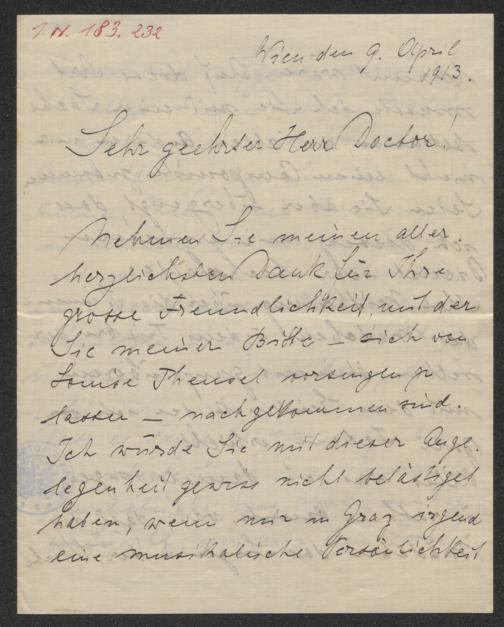 I.N. 183.232
Wien den 9. April
1913.
Sehr geehrter Herr Doctor!
Nehmen Sie meinen aller-
herzlichsten Dank für Ihre
grosse Freundlichkeit, mit der
Sie meiner Bitte – sich von
Louise Thensel vorsingen zu
lassen – nachgekommen sind.
Ich würde Sie mit dieser Ange-
legenheit gewiss nicht belästiget
haben, wenn mir in Graz irgend
eine musikalische Persönlichkeit